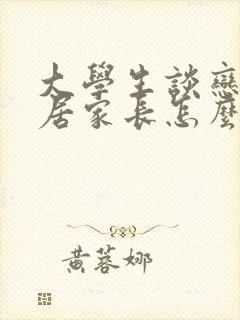 大學生談戀
居家長怎麼
黃蓉娜